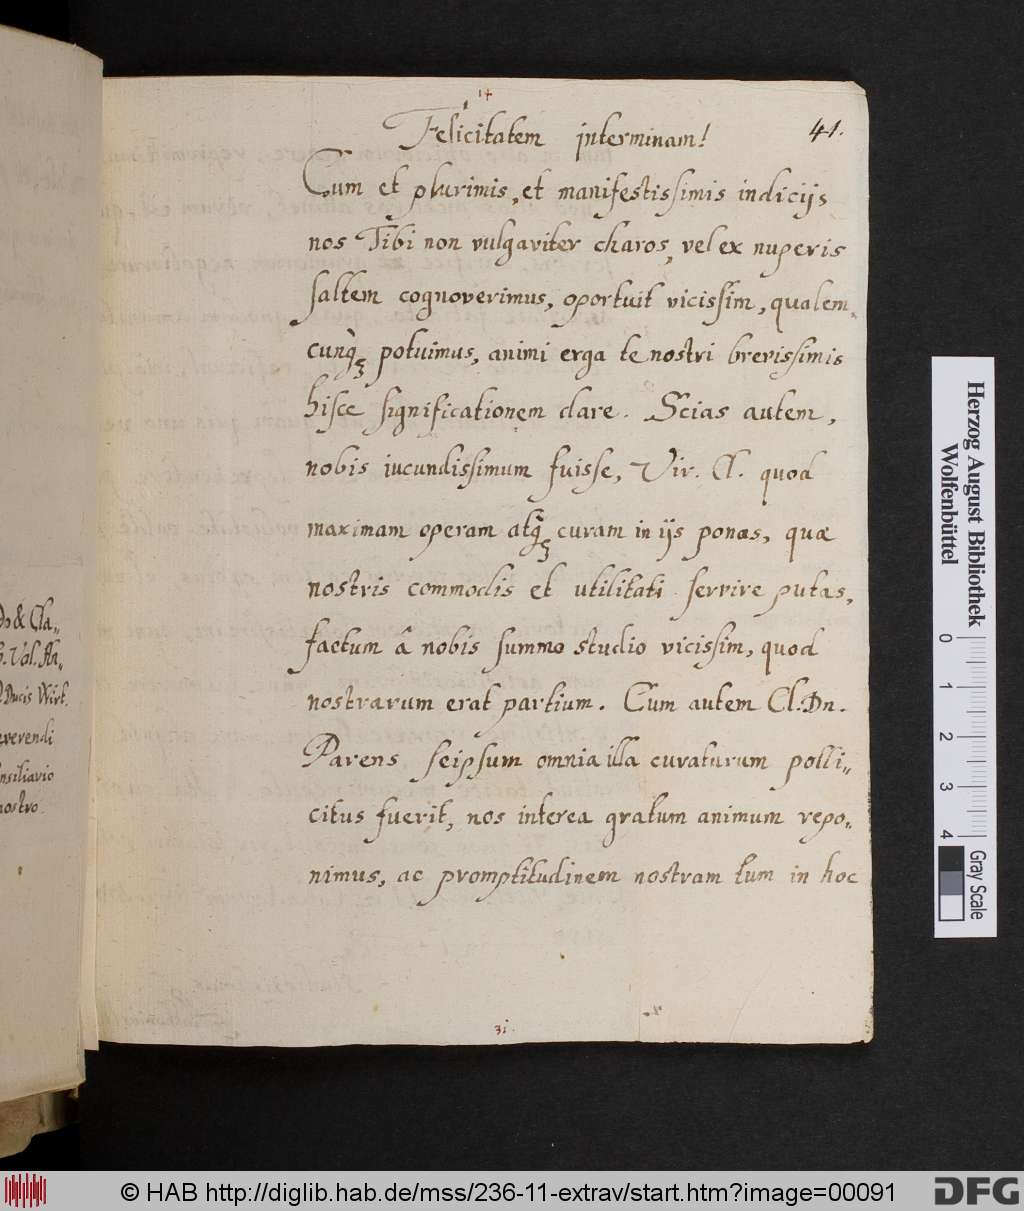 14
Felicitatem interminam!
41.
Cum et plurimis, et manifestissimis indicijs
nos Tibi non vulgariter charos, vel ex nuperis
saltem cognoverimus, oportuit vicissim, qualem,,
cunq̃ potuimus, animi erga te nostri brevissimis
hisce significationem dare. Scias autem,
nobis iucundissimum fuisse, Vir. Cl. quod
maximam operam atq̃ curam in ijs ponas, quæ
nostris commodis et utilitati servire putas,
factum â nobis summo studio vicissim, quod
nostrarum erat partium. Cum autem Cl. Dn.
Parens seipsum omnia illa curaturum polli,,
citus fuerit, nos interea gratum animum repo,,
nimus, ac promptitudinem nostram tum in hoc
31.
& Cla,,
Val. An,,
Ducis Wirt.
everendi
nsiliario
nostro.
Herzog August Bibliothek
Wolfenbüttel
0 1 2 3 4
Gray Scale
© HAB http://diglib.hab.de/mss/236-11-extrav/start.htm?image=00091
DFG